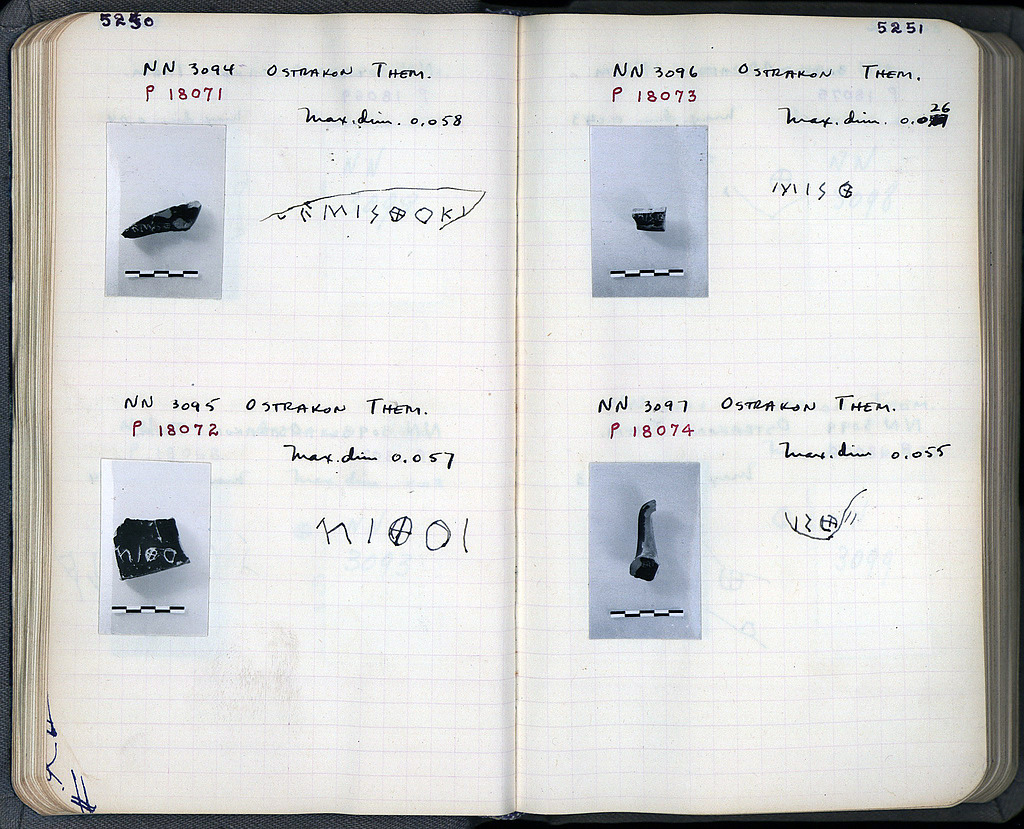 5250
NN 3094 OSTRAKON THEM.
P 18071
Max. dim. 0.058
NN 3095 OSTRAKON THEM.
P 18072
Max. dim 0.057
5251
NN 3096 OSTRAKON THEM.
P 18073
Max. dim. 0.026
NN 3097 OSTRAKON THEM.
P 18074
Max. dim 0.055